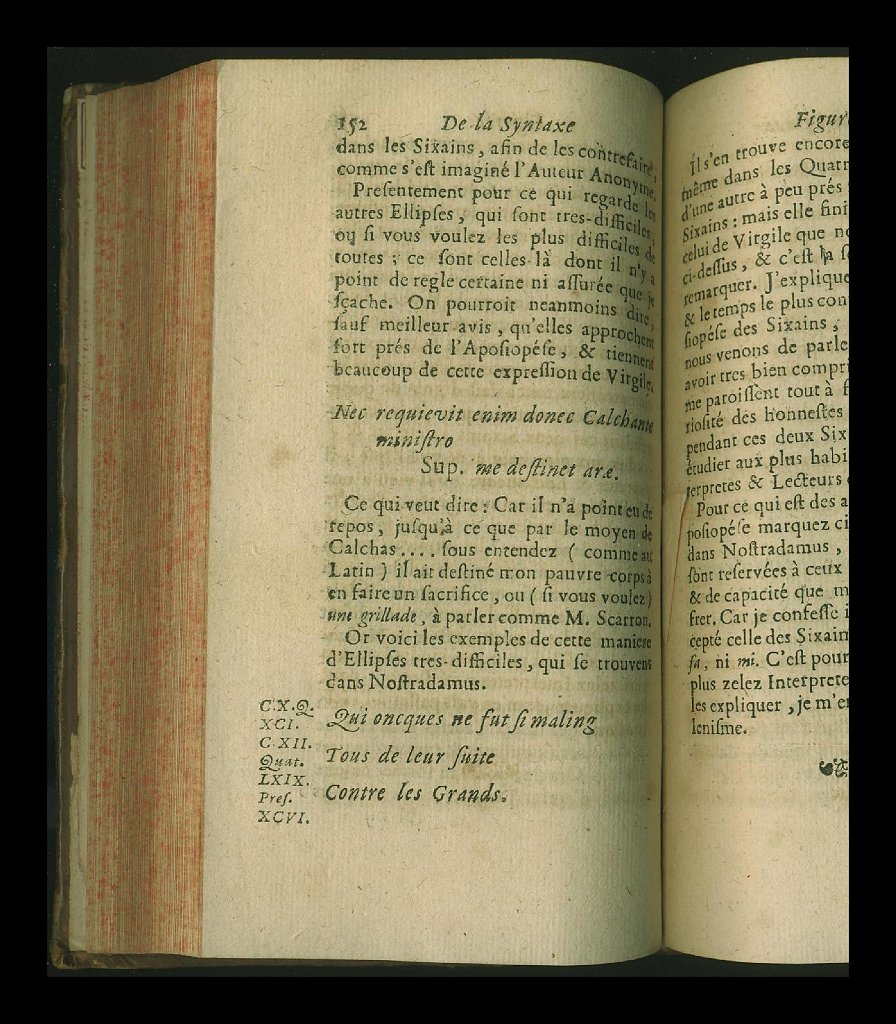 152 De la Syntaxe
dans les Sixains, afin de les contrefaire,
comme s'est imaginé l'Auteur Anonyme.
Presentement pour ce qui regarde les
autres Ellipses, qui sont tres-difficiles,
ou si vous voulez les plus difficiles de
toutes ; ce sont celles-là dont il n'y a
point de regle certaine ni assurée que je
sçache. On pourroit neanmoins dire,
sauf meilleur avis, qu'elles approchent
fort prés de l'Aposiopése, & tiennent
beaucoup de cette expression de Virgile.
Nec requievit enim donec Calchante
ministro
Sup. me destinet aræ.
Ce qui veut dire : Car il n'a point eu de
repos, jusqu'à ce que par le moyen de
Calchas.... sous entendez ( comme au
Latin ) il ait destiné mon pauvre corps à
en faire un sacrifice, ou ( si vous voulez )
une grillade, à parler comme M. Scarron.
Or voici les exemples de cette maniere
d'Ellipses tres-difficiles, qui se trouvent
dans Nostradamus.
C.X.Q.
XCI. Qui oncques ne fut si maling
C. XII.
Quat. Tous de leur suite
LXIX.
Pres. Contre les Grands.
XCVI.
Figur
Il s'en trouve encore
même dans les Quatr
d'une autre à peu prés
Sixains : mais elle fini
celui de Virgile que no
ci-dessus, & c'est la
remarquer. J'explique
& le temps le plus con
siopése des Sixains,
nous venons de parle
avoir tres bien compri
me paroissent tout à f
riosité des honnestes
pendant ces deux Six
étudier aux plus habi
terpretes & Lecteurs
Pour ce qui est des a
posiopése marquez ci
dans Nostradamus,
sont reservées à ceux
& de capacité que m
frer. Car je confesse i
cepté celle des Sixain
fa, ni mi. C'est pour
plus zelez Interprete
les expliquer, je m'e
lenisme.